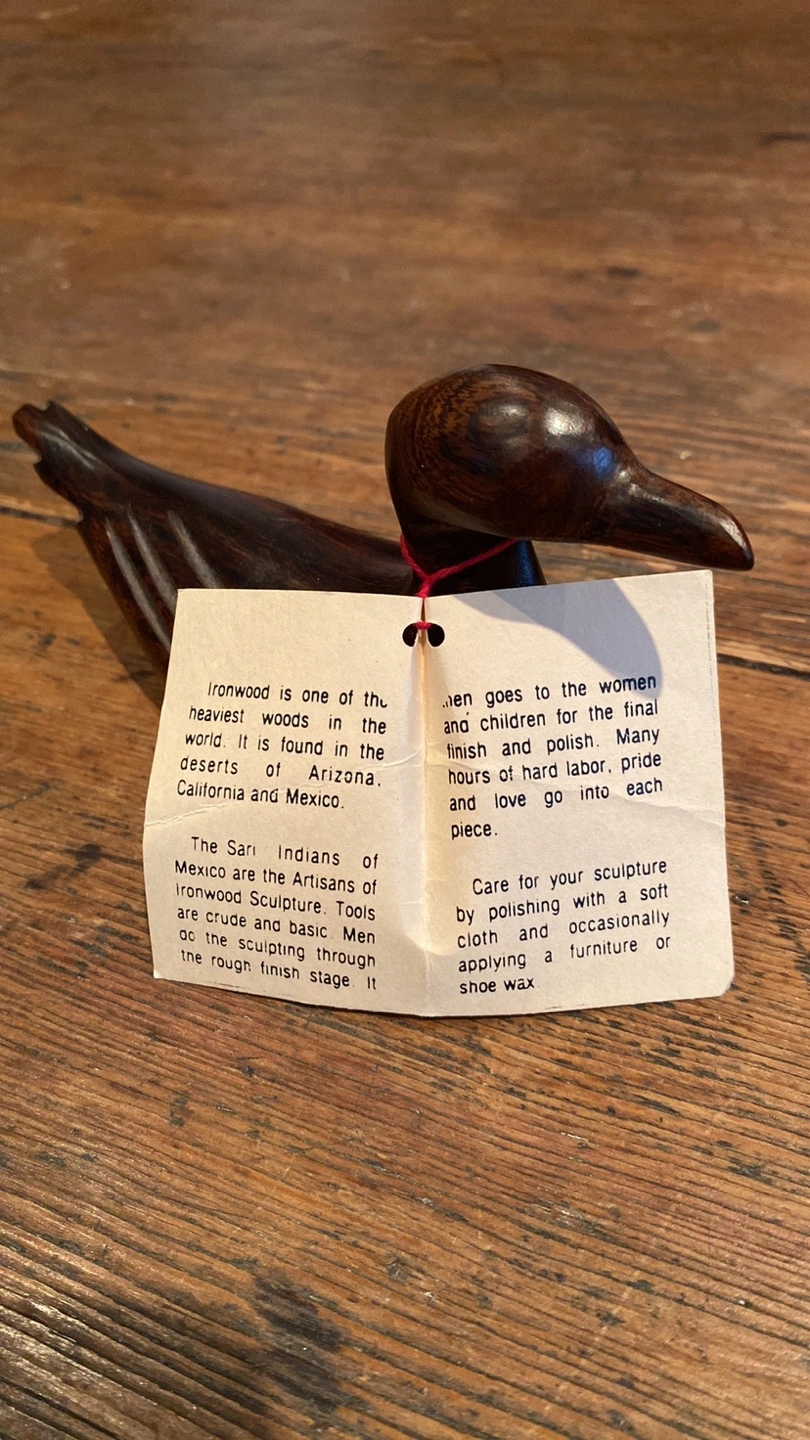 Ironwood is one of the
heaviest woods in the
world. It is found in the
deserts of Arizona,
California and Mexico.
The Sari Indians of
Mexico are the Artisans of
Ironwood Sculpture. Tools
are crude and basic. Men
do the sculpting through
the rough finish stage. It
then goes to the women
and children for the final
finish and polish. Many
hours of hard labor, pride
and love go into each
piece.
Care for your sculpture
by polishing with a soft
cloth and occasionally
applying a furniture or
shoe wax